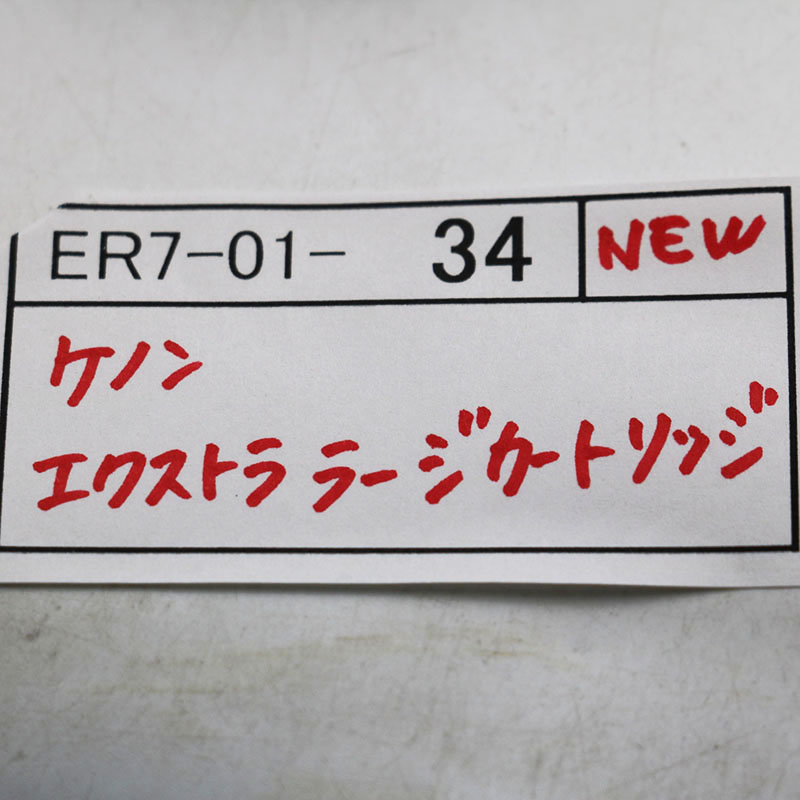 ER7-01- 34 NEW
ケノン
エクストララージカートリッジ